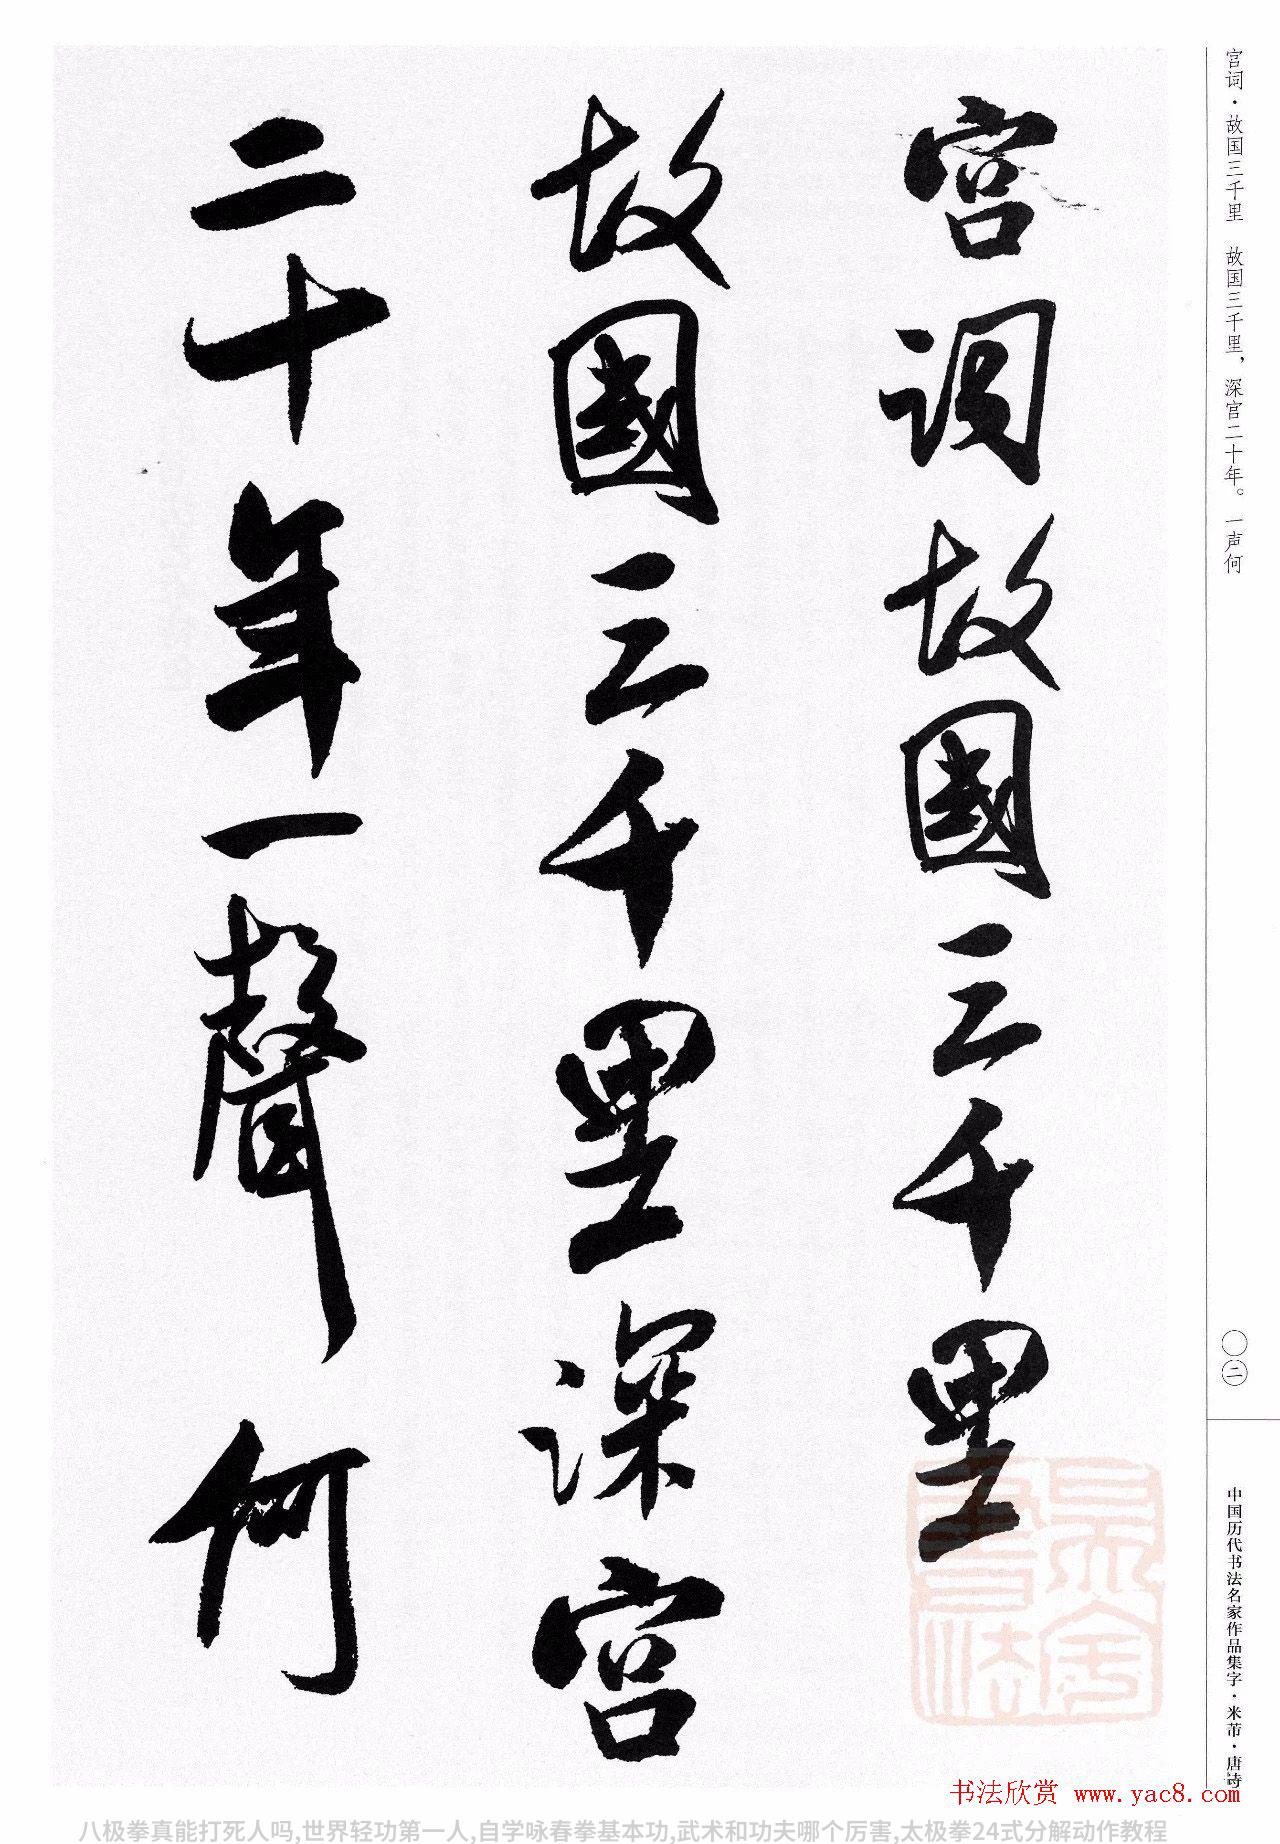 宫词·故国三千里　故国三千里，深宫二十年。一声何
宫词故國三千里
故國三千里深宫
二十年一聲何
〇二
中国历代书法名家作品集字·米芾·唐诗
书法欣赏 www.yac8.com
八极拳真能打死人吗,世界轻功第一人,自学咏春拳基本功,武术和功夫哪个厉害,太极拳24式分解动作教程